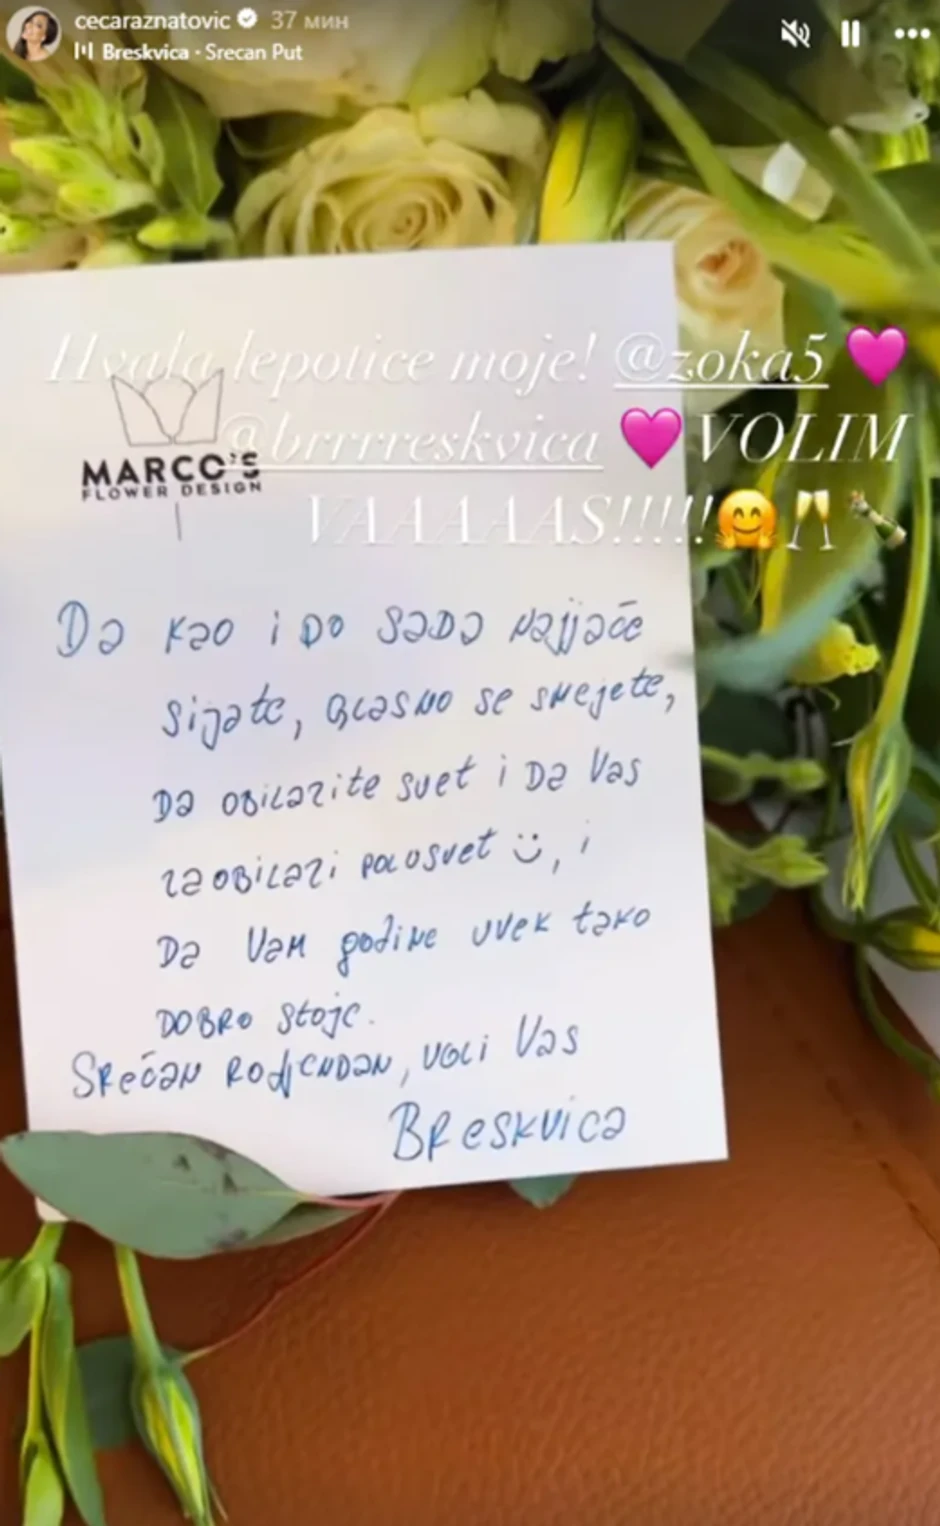 cecaraznatovic 37 мин
Breskvica · Srecan Put
Hvala lepotice moje! @zoka5 💗
@brrrreskvica 💗 VOLIM
VAAAAAS!!!!!🤗🥂🍾
MARCO'S
FLOWER DESIGN
Da kao i do sada najjače
sijate, glasno se smejete,
da obilazite svet i da Vas
zaobilazi polusvet :), i
da Vam godine uvek tako
dobro stoje.
Srećan rodjendan, voli Vas
Breskvica